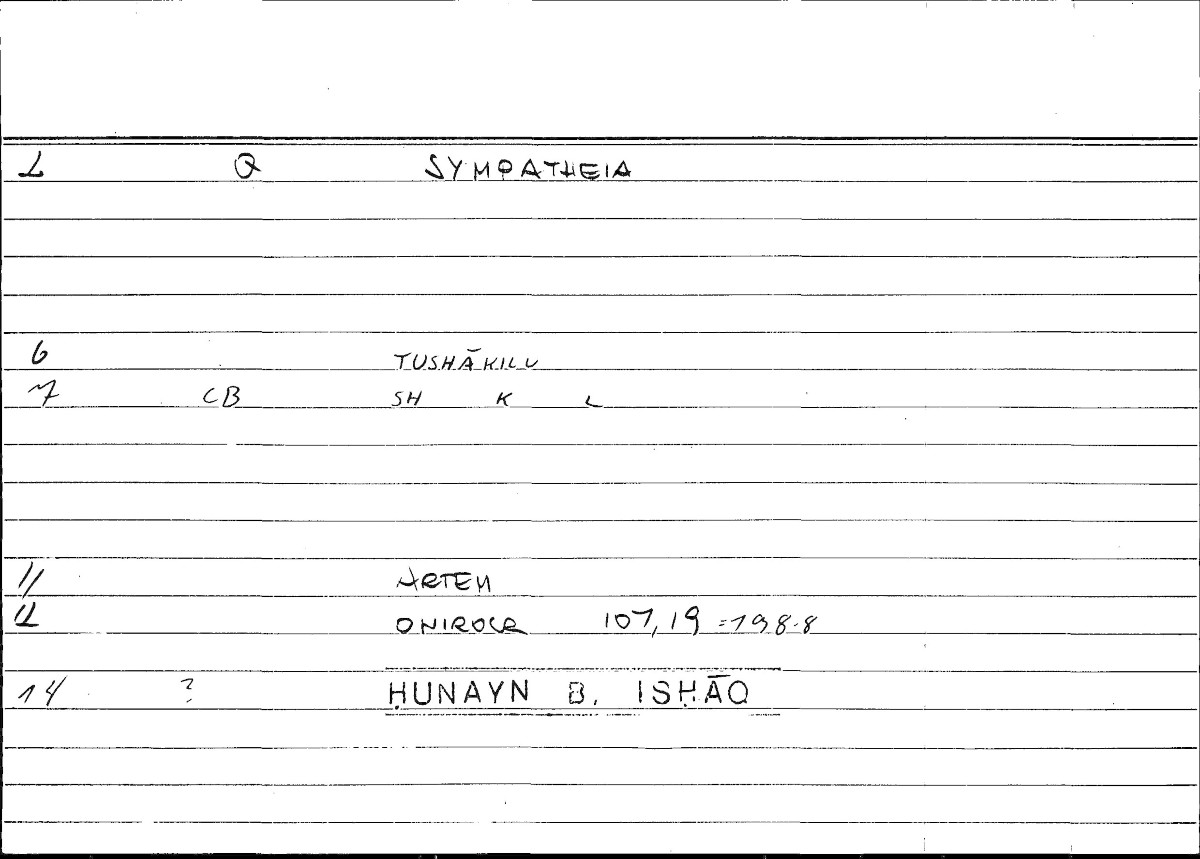 1 Q SYMPATHEIA
6 TUSHĀKILU
7 CB SH K L
11 ARTEM
12 ONIROCR 107,19 = 198.8
14 ? ḤUNAYN B. ISḤĀQ